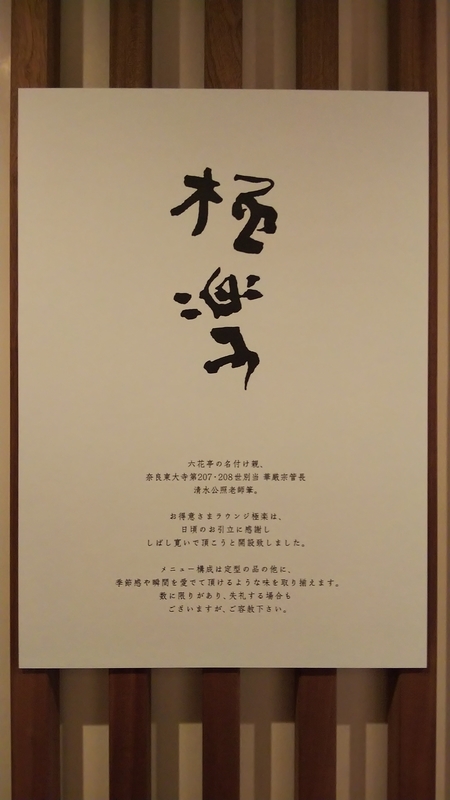 極
楽
六花亭の名付け親、
奈良東大寺第207・208世別当 華厳宗管長
清水公照老師筆。
お得意さまラウンジ極楽は、
日頃のお引立に感謝し
しばし寛いで頂こうと開設致しました。
メニュー構成は定型の品の他に、
季節感や瞬間を愛でて頂けるような味を取り揃えます。
数に限りがあり、失礼する場合も
ございますが、ご容赦下さい。